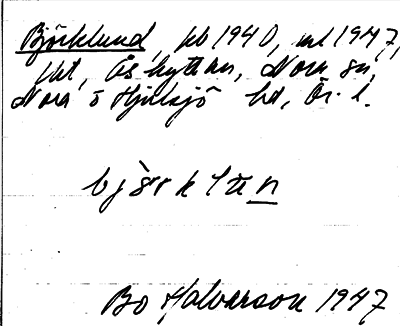 Björklund, kb 1940, ml 1947,
fkt, Åshyttan, Nora sn,
Nora o Hjulsjö hd, Ör. l.
björklun
Bo Halvarson 1947